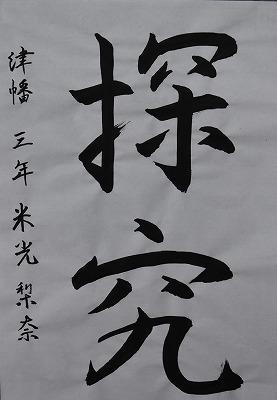 探究
津幡 三年 米光 梨奈